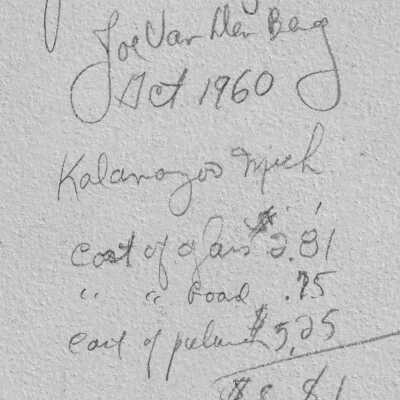 Joe Van Den Berg
Oct 1960
Kalamazoo Mich
Cost of glass $2.81
" " Road .75
Cost of picture $5.25
$8.81